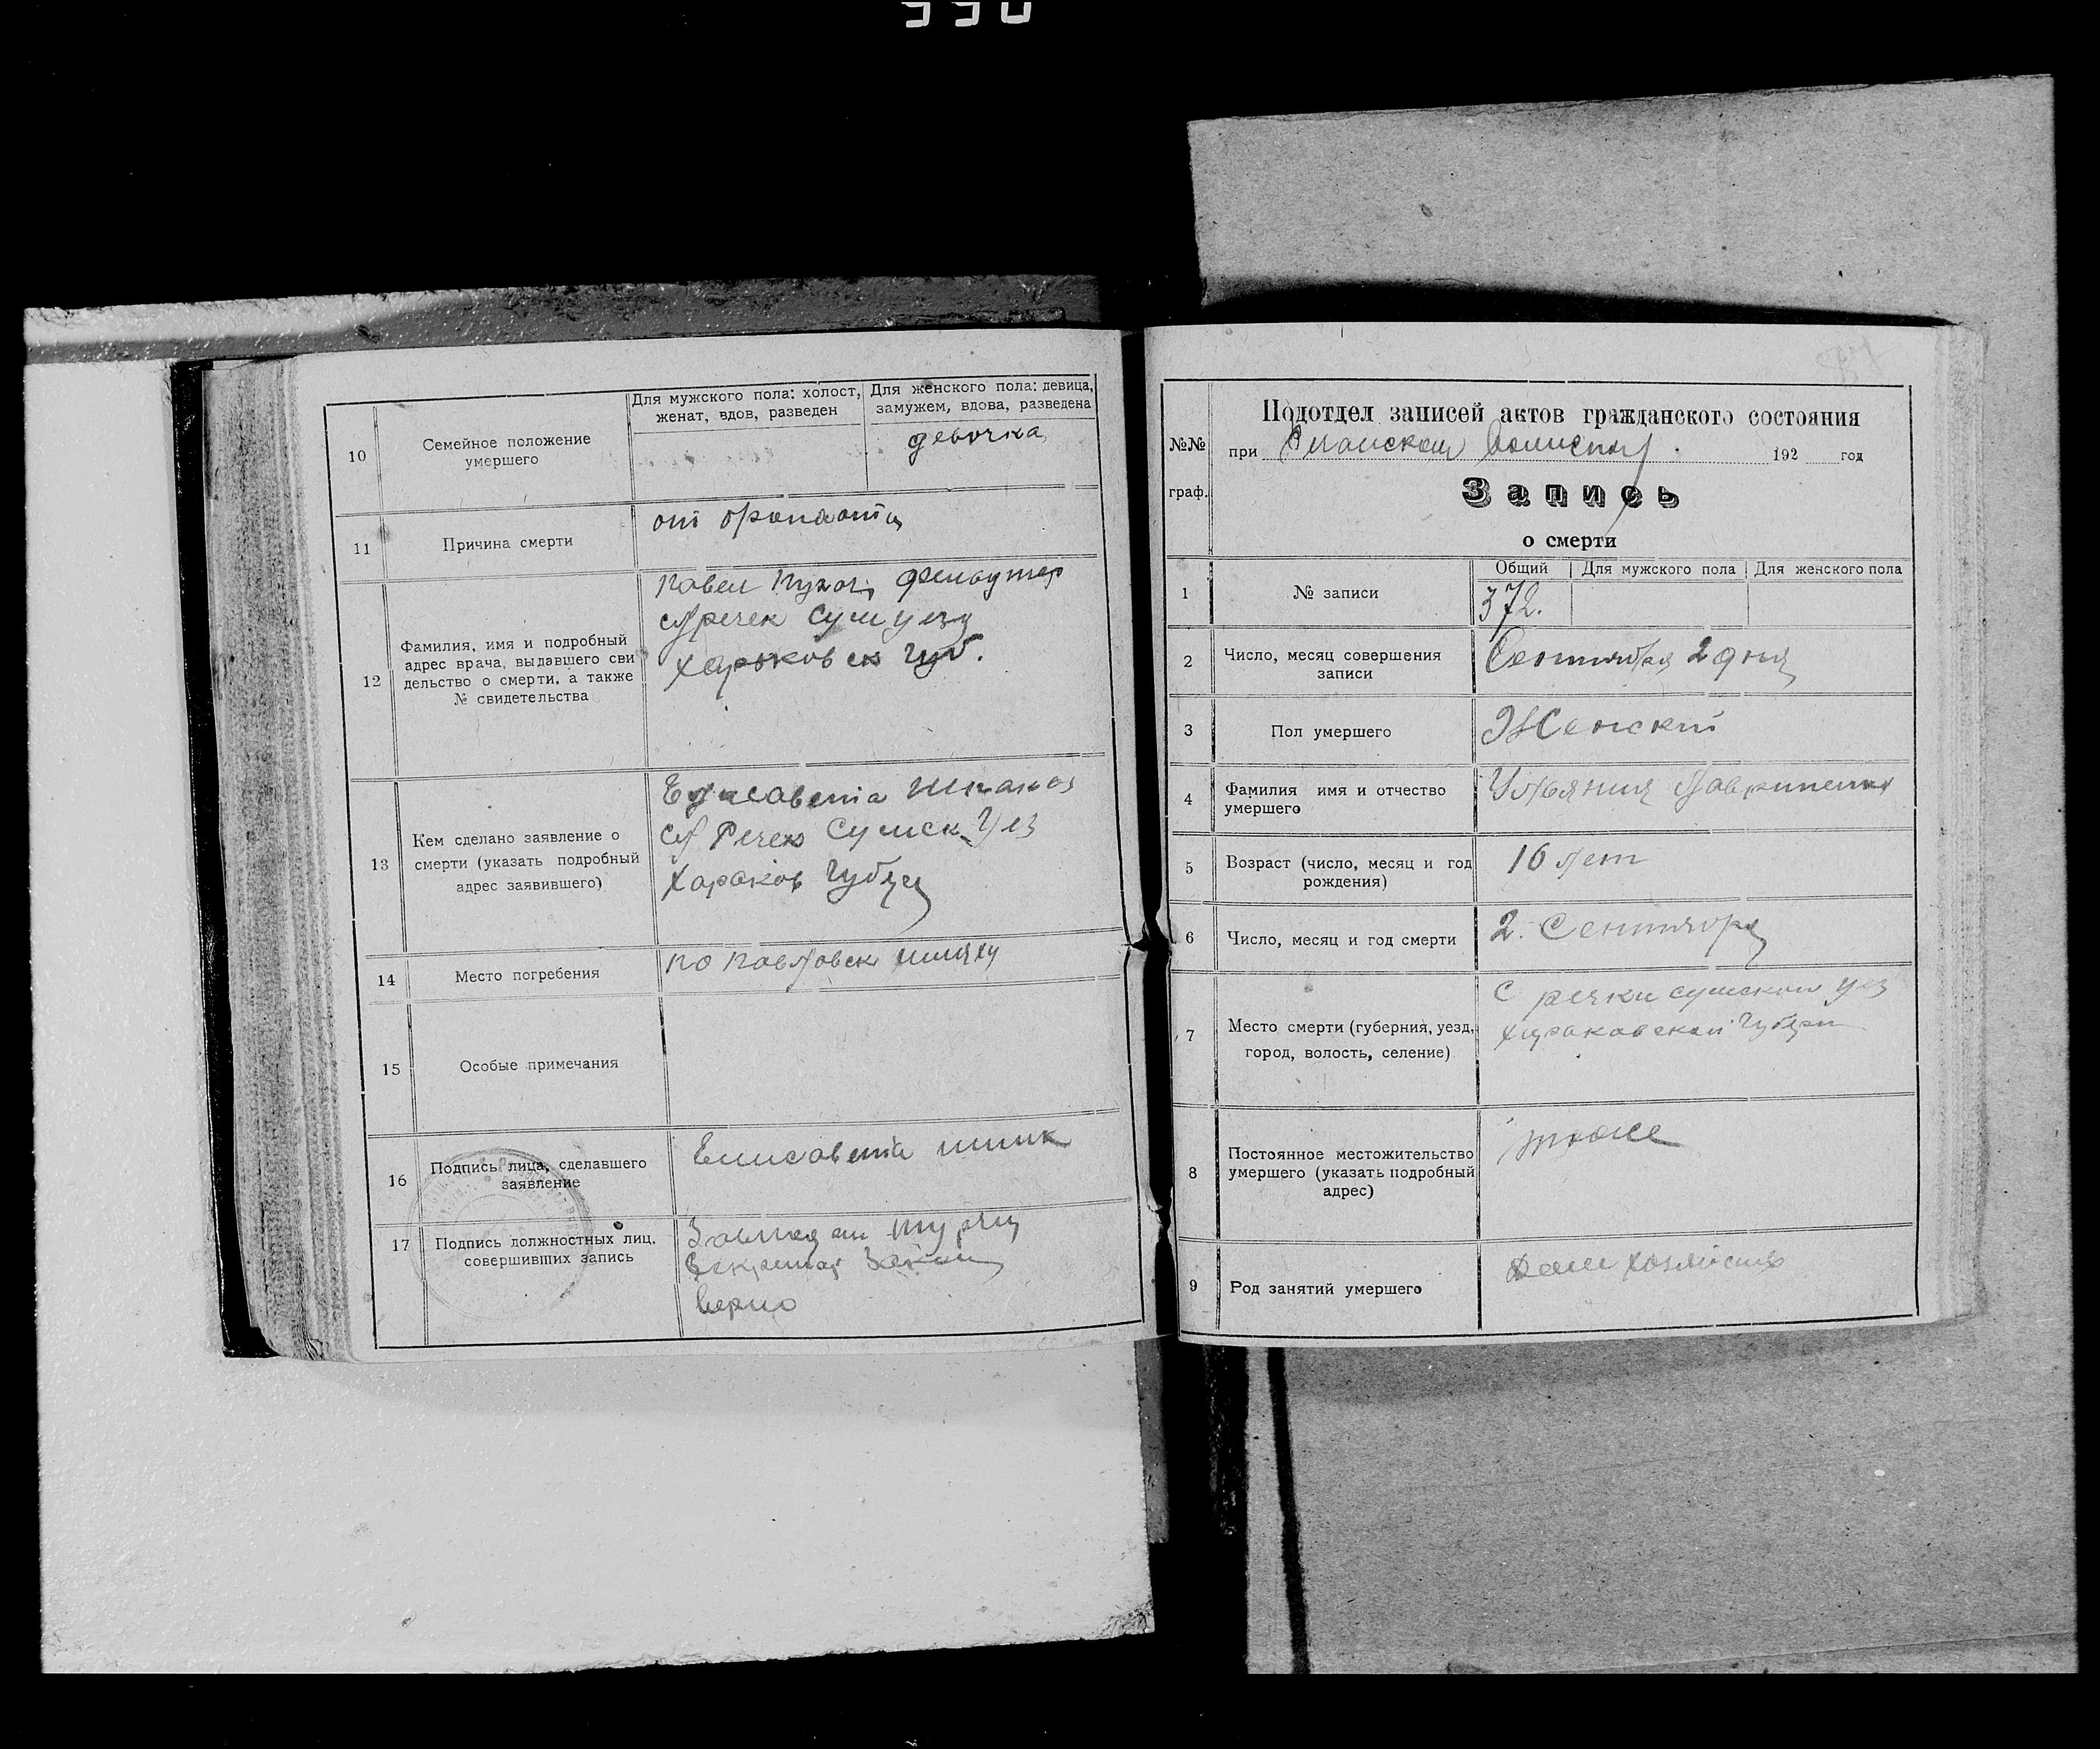 990
10
Семейное положение
умершего
Для мужского пола: холост,
женат, вдов, разведен
Для женского пола: девица,
замужем, вдова, разведена
девочка
11
Причина смерти
от
12
Фамилия, имя и подробный
адрес врача, выдавшего сви
дельство о смерти, а также
№ свидетельства
Павел
Сум
Харьковск Губ.
13
Кем сделано заявление о
смерти (указать подробный
адрес заявившего)
Елисавета
Речек Сумск Уез
Харьков
14
Место погребения
по Павловск шляху
15
Особые примечания
16
Подпись лица, сделавшего
заявление
Елисавета
17
Подпись должностных лиц,
совершивших запись
Верно
№№
граф.
Подотдел записей актов гражданского состояния
при
192 год
Запись
о смерти
1
№ записи
Общий
Для мужского пола
Для женского пола
372.
2
Число, месяц совершения
записи
Сентября 2 дня
3
Пол умершего
Женский
4
Фамилия имя и отчество
умершего
Ульяния
5
Возраст (число, месяц и год
рождения)
16 лет
6
Число, месяц и год смерти
2. Сентября
7
Место смерти (губерния, уезд,
город, волость, селение)
С речки сумскои уез
Хараковскои Губерн
8
Постоянное местожительство
умершего (указать подробный
адрес)
тоже
9
Род занятий умершего